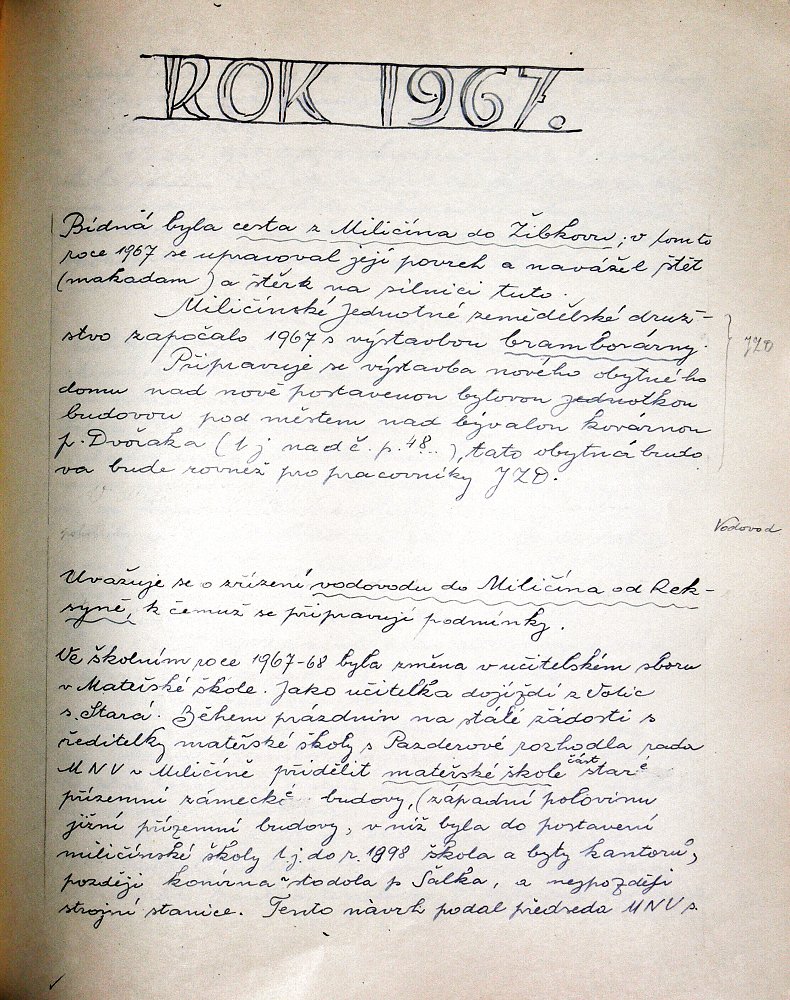 ROK 1967.
Bídná byla cesta z Miličína do Žibkova; v tomto
roce 1967 se upravoval její povrch a navážel štět
(makadam) a štěrk na silnici tuto.
Miličínské jednotné zemědělské druž-
stvo započalo 1967 s výstavbou bramborárny.
JZD
Připravuje se výstavba nového obytného
domu nad nově postavenou bytovou jednotkou
budovou pod městem nad bývalou kovárnou
p. Dvořáka (t.j. nad č. p. 48..), tato obytná budo
va bude rovněž pro pracovníky JZD.
Vodovod
Uvažuje se o zřízení vodovodu do Miličína od Rek-
syně, k čemuž se připravují podmínky.
Ve školním roce 1967-68 byla změna v učitelském sboru
v Mateřské škole. Jako učitelka dojíždí z Votic
s. Stará. Během prázdnin na stálé žádosti s
ředitelky mateřské školy s Pazderové rozhodla rada
MNV v Miličíně přidělit mateřské škole část staré
přízemní zámecké budovy, (západní polovinu
jižní přízemní budovy, v níž byla do postavení
miličínské školy t.j. do r. 1898 škola a byty kantorů,
později konírna stodola p Šálka, a nejpozději
strojní stanice. Tento návrh podal předseda MNV s.